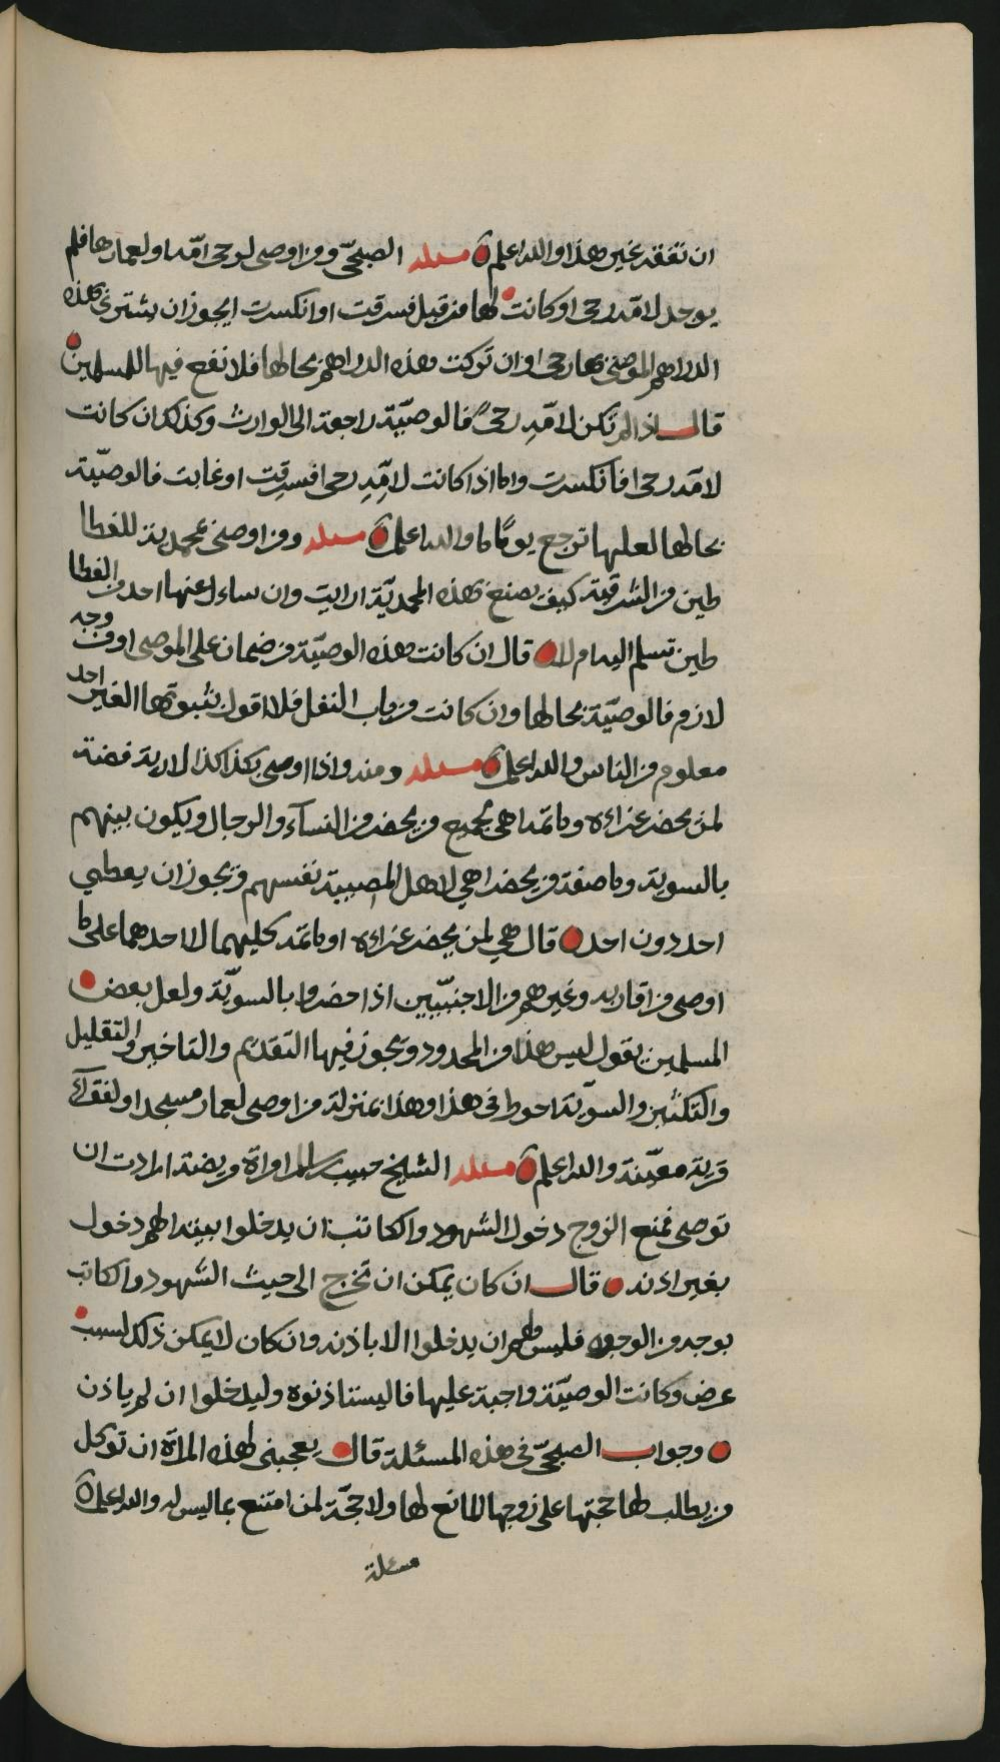 ان تفقد غير هذا والله اعلم مسئلة الصبحي ومن اوصى لرحى امه او لعمارها فلم
يوجد لامه رحى او كانت لها من قبل فسرقت او انكسرت ايجوز ان يشترى بهذه
الدراهم الموصى بها رحى او ان تركت هذه الدراهم بحالها فلا نفع فيها للمسلمين
قال اذا لم تكن لامه رحى فالوصية راجعة الى الوارث وكذلك ان كانت
لامه رحى فانكسرت واما اذا كانت لامه رحى فسرقت او غابت فالوصية
بحالها لعلها ترجع يوما ما والله اعلم مسئلة ومن اوصى بمحمدية للغطا
طين من الشرقية كيف يصنع بهذه المحمدية ارايت وان ساءل عنها احد من الغطا
طين تسلم اليه ام لا قال ان كانت هذه الوصية من ضمان على الموصى او من وجه
لازم فالوصية بحالها وان كانت من باب النفل فلا اقول بثبوتها لغير احد
معلوم من الناس والله اعلم مسئلة ومنه واذا اوصى بكذا كذا لارية فضة
لمن يحضر عزاءه وماتمه اهى لجميع من يحضر من النساء والرجال ويكون بينهم
بالسوية وما صفة من يحضر اهي لاهل المصيبة نفسهم ويجوز ان يعطي
احد دون احد قال هي لمن يحضر عزاءه او ماتمه كليهما لا احدهما على ما
اوصى من اقاربه وغيرهم من الاجنبيين اذا حضروا بالسوية ولعل بعض
المسلمين يقول ليس هذا من المحدود ويجوز فيها التقديم والتاخير والتقليل
والتكثير والسوية احوط في هذا وهذا بمنزلة من اوصى لعمار مسجد او لفقرآء
قرية معينة والله اعلم مسئلة الشيخ حبيب بن سالم امراة مريضة ارادت ان
توصى فمنع الزوج دخول الشهود والكاتب ان يدخلوا بيته الهم دخول
بغير اذنه قال ان كان يمكن ان تخرج الى حيث الشهود والكاتب
بوجه من الوجوه فليس لهم ان يدخلوا الا باذنه وان كان لا يمكن ذلك لسبب
عرض وكانت الوصية واجبة عليها فاليستاذنوه وليدخلوا ان لم ياذن
وجواب الصبحي في هذه المسئلة قال يعجبنى لهذه المراة ان توكل
من يطالب لها حجتها على زوجها المانع لها ولا حجة لمن امتنع بما ليس له والله اعلم
مسئلة